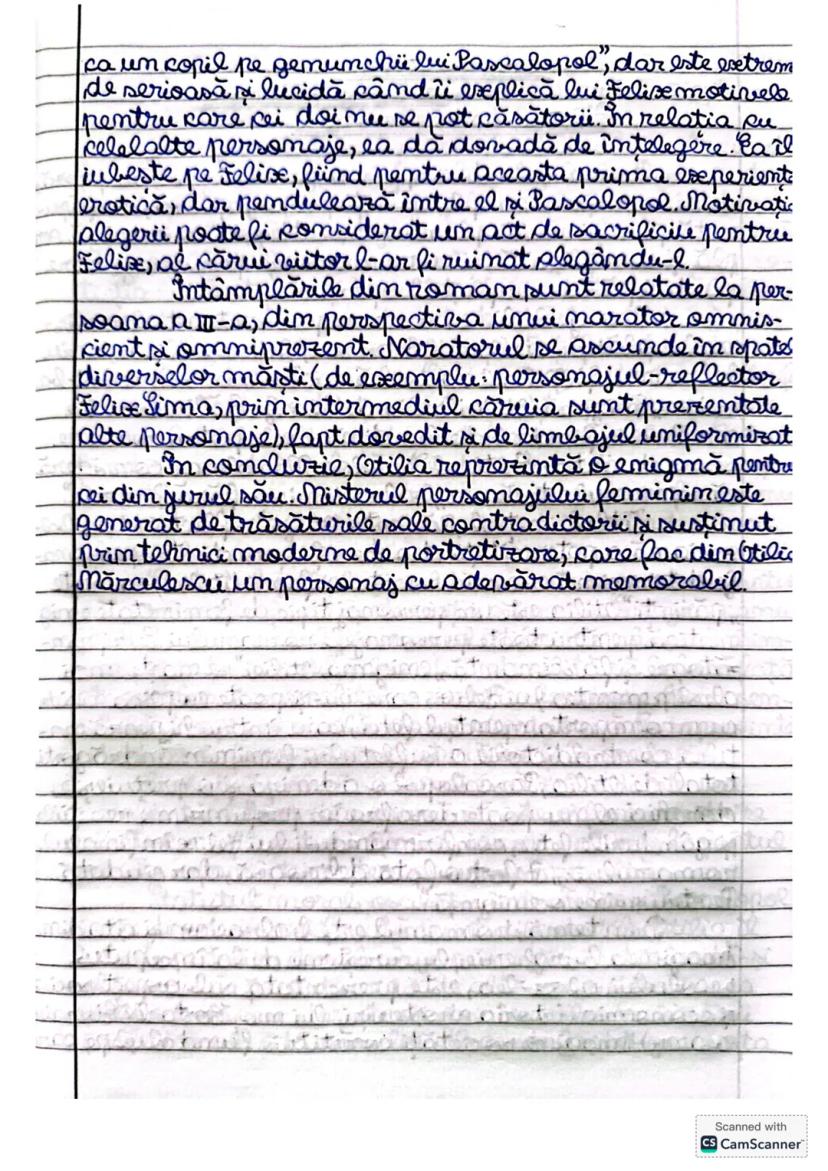 ca un copil pe genunchii lui Pascalopol", dar este extrem
de serioasă și lucidă când îi explică lui Felix motivele
pentru care cei doi nu se pot căsători. În relația cu
celelalte personaje, ea dă dovadă de înțelegere. Ea îl
iubește pe Felix, fiind pentru aceasta prima experienț
erotică, dar pendulează între el și Pascalopol. Motivați
alegerii poate fi considerat un act de sacrificiu pentru
Felix, al cărui viitor l-ar fi ruinat alegându-l.
Întâmplările din roman sunt relatate la per-
soana a III-a, din perspectiva unui narator omnis-
cient și omniprezent. Naratorul se ascunde în spate
diverselor măști (de exemplu: personajul-reflector
Felix Sima, prin intermediul căruia sunt prezentate
alte personaje), fapt dovedit și de limbajul uniformizat
În concluzie, Otilia reprezintă o enigmă pentru
cei din jurul său. Misterul personajului feminin este
generat de trăsăturile sale contradictorii și susținut
prin tehnici moderne de portretizare, care fac din Otilia
Mărculescu un personaj cu adevărat memorabil.
Scanned with
CS CamScanner